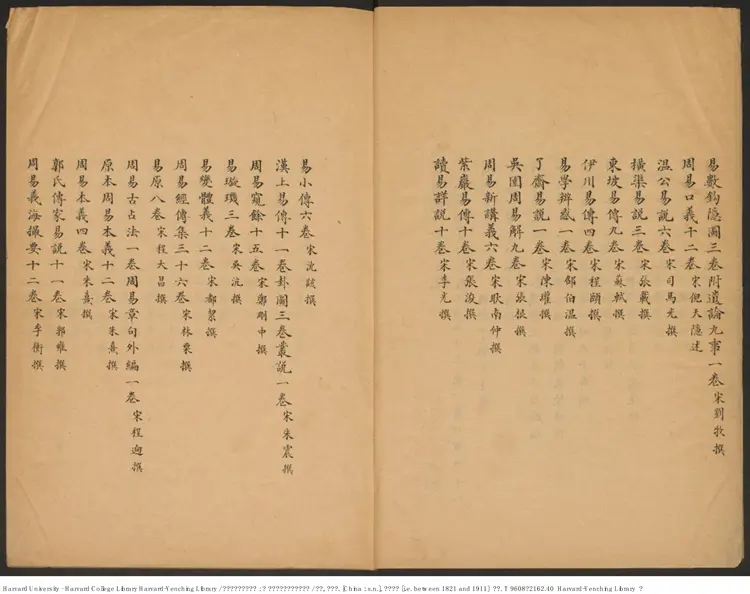 易數鈎隱圖三卷附遺論九事一卷宋劉牧撰
周易口義十二卷宋倪天隱述
温公易說六卷宋司馬光撰
橫渠易說三卷宋張載撰
東坡易傳九卷宋蘇軾撰
伊川易傳四卷宋程頤撰
易學辨惑一卷宋邵伯温撰
了齋易說一卷宋陳瓘撰
吳園周易解九卷宋張根撰
周易新講義六卷宋耿南仲撰
紫巖易傳十卷宋張浚撰
讀易詳說十卷宋李光撰
易小傳六卷宋沈該撰
漢上易傳十一卷卦圖三卷叢說一卷宋朱震撰
周易窺餘十五卷宋鄭剛中撰
易璇璣三卷宋吳沆撰
易變體義十二卷宋都絜撰
周易經傳集三十六卷宋林栗撰
易原八卷宋程大昌撰
周易古占法一卷周易章句外編一卷宋程迥撰
原本周易本義十二卷宋朱熹撰
周易本義四卷宋朱熹撰
郭氏傳家易說十一卷宋郭雍撰
周易義海撮要十二卷宋李衡撰
Harvard University - Harvard College Library Harvard-Yenching Library / ????????? : ? ??????????? / ??, ???. [China : s.n.], ???? [i.e. between 1821 and 1911] ??. T 9608 ?2162.40 Harvard-Yenching Library ?